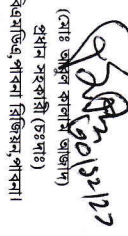 ৩০/১২/২১
(মোঃ আবুল কালাম আজাদ)
প্রধান সহকারী (চঃদাঃ)
বিএমডিএ, পাবনা রিজিয়ন, পাবনা।